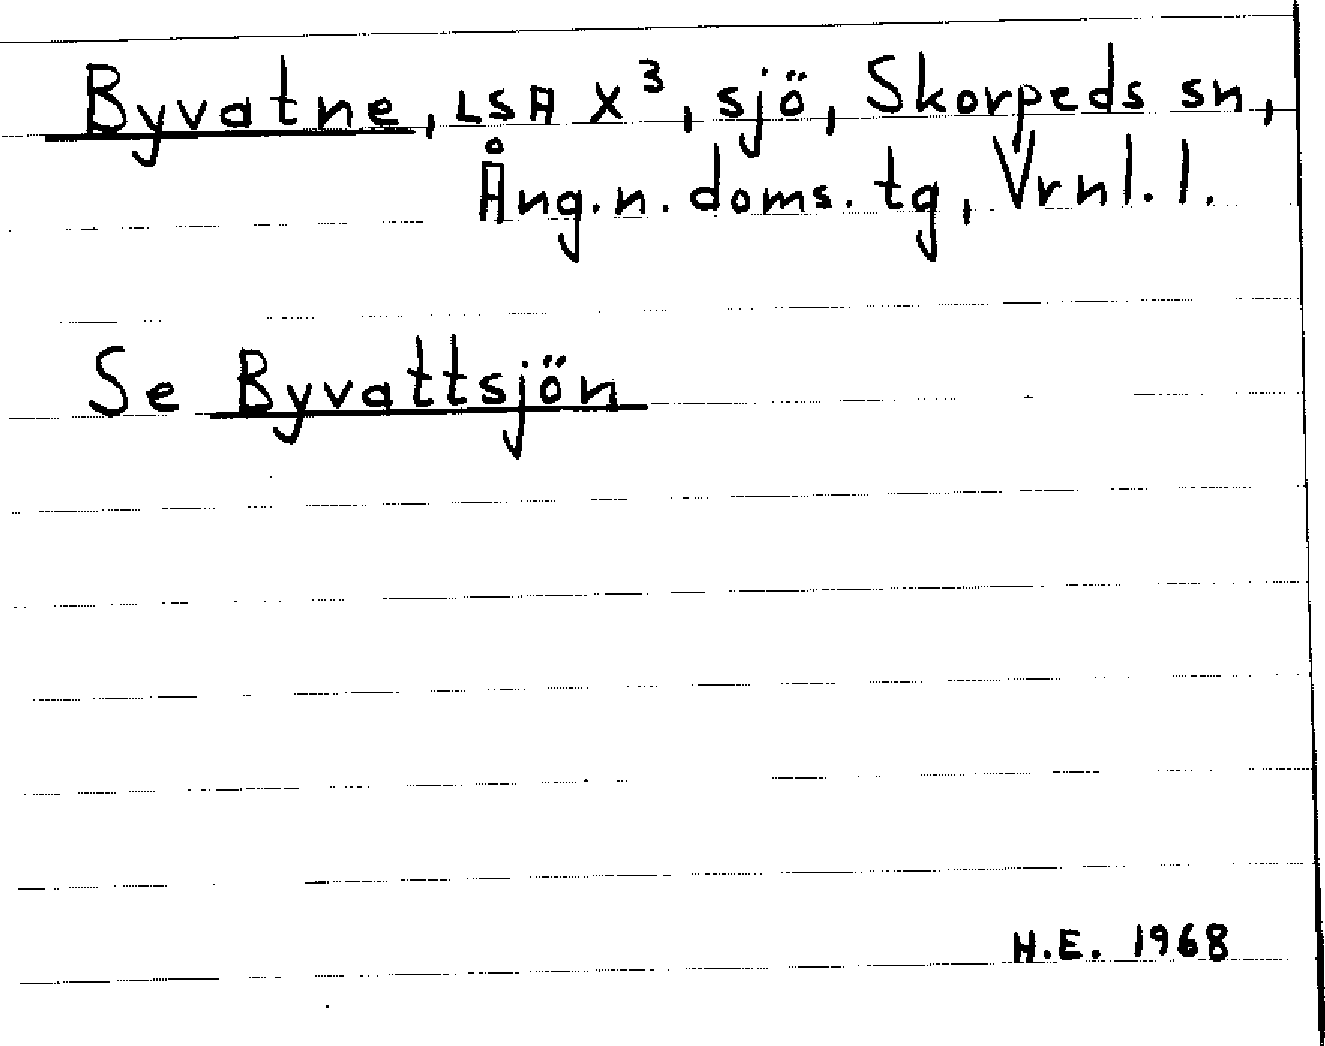 Byvatne, LSA X³, sjö, Skorpeds sn,
Ång.n. doms. tg, Vrnl. l.
Se Byvattsjön
H.E. 1968